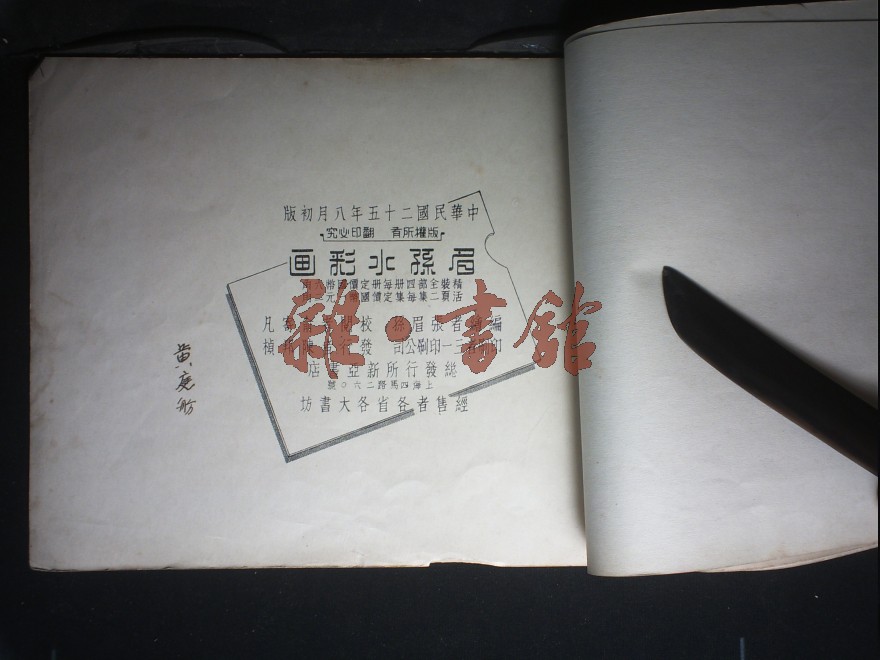 中華民國二十五年八月初版
版權所有 翻印必究
眉孫水彩画
精裝全部四册每册定價國幣
活頁二集每集定價國幣 元
編 者張眉孫 校閱 凡
印刷者三一印刷公司 發行者陳邦楨
總發行所新亞書店
上海四馬路二六〇號
經售者各省各大書坊
黄慶
雜·書館